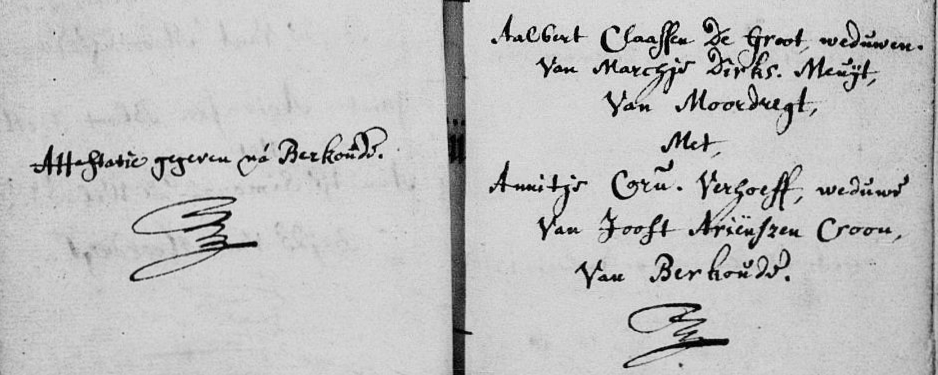 Attestatie gegeven na Berkoude.
Aalbert Claassen De Groot, weduwen.
Van Marchje Dirks. Meuÿt,
Van Moordregt,
Met,
Annitje Corn. Verhoeff, weduwe
Van Joost Ariënszen Croon,
Van Berkoude.